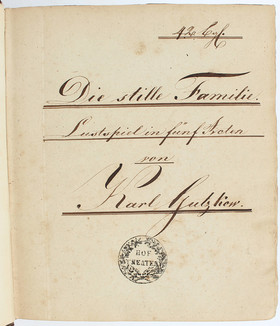 42
Die stille Familie.
Lustspiel in fünf Acten
von
Karl Gutzkow.
HOF
THEATER